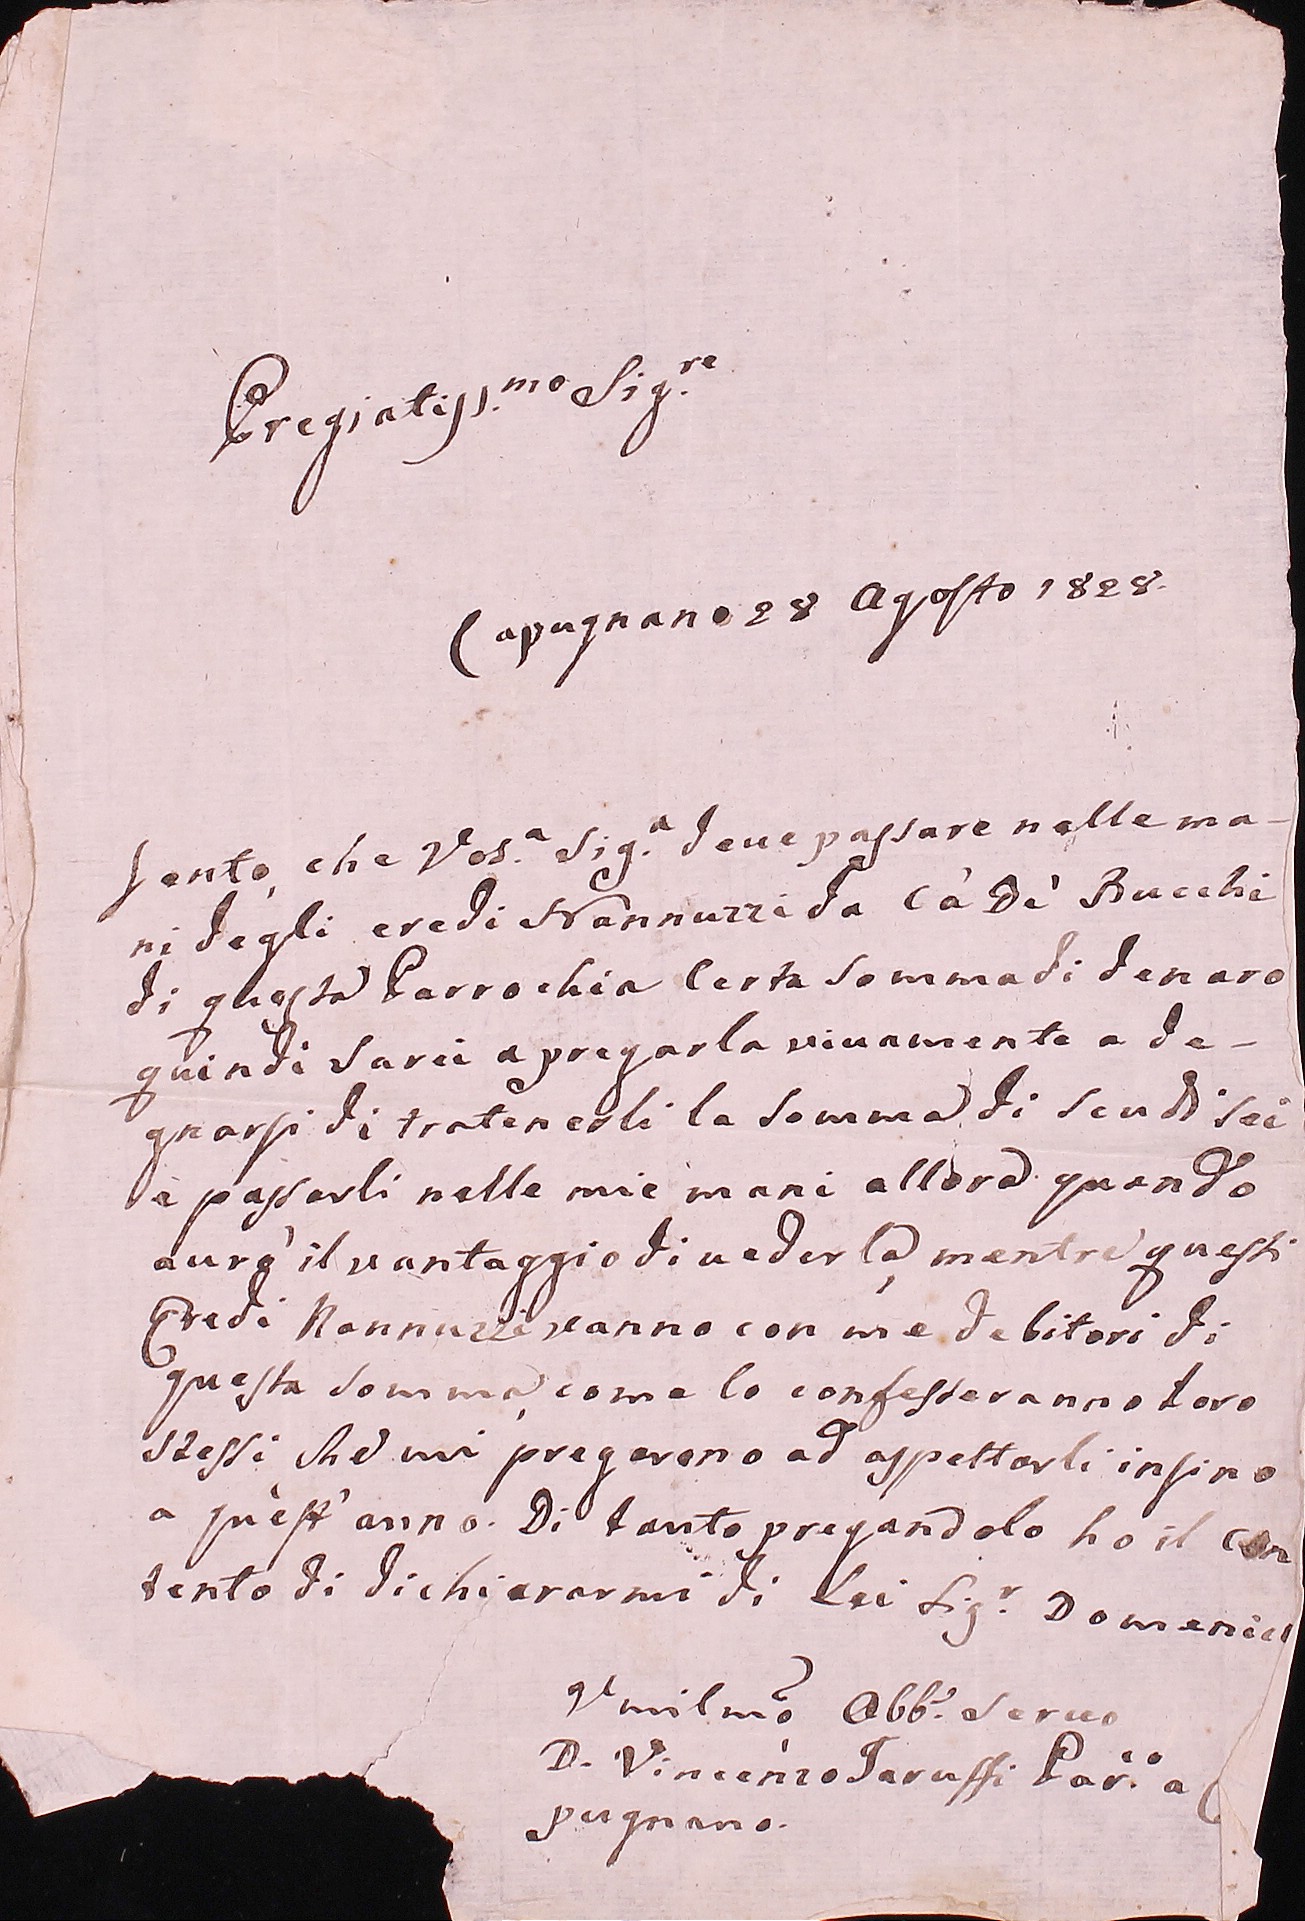 Pregiatiss.mo Sig.re
Capugnano 28 Agosto 1828.
Sento, che Vos.a Sig.a deve passare nelle ma-
ni degli eredi Nannuzzi da Cà Dè Bucchi
di questa Parrochia Certa Somma di denaro
quindi sarei a pregarla vivamente a de-
gnarsi di tratenerli la Somma di scudi sei
e passarli nelle mie mani allora quando
avrò il vantaggio di vederla, mentre questi
Eredi Nannuzzi vanno con me debitori di
questa somma, come lo confesseranno loro
stessi che mi pregarono ad aspettarli insino
a quest' anno. Di tanto pregandolo ho il con
tento di dichiararmi di Lei Sig.r Domenico
Vmilmo Obb. Servo
D. Vincenzo Taruffi Par.co a C
pugnano.